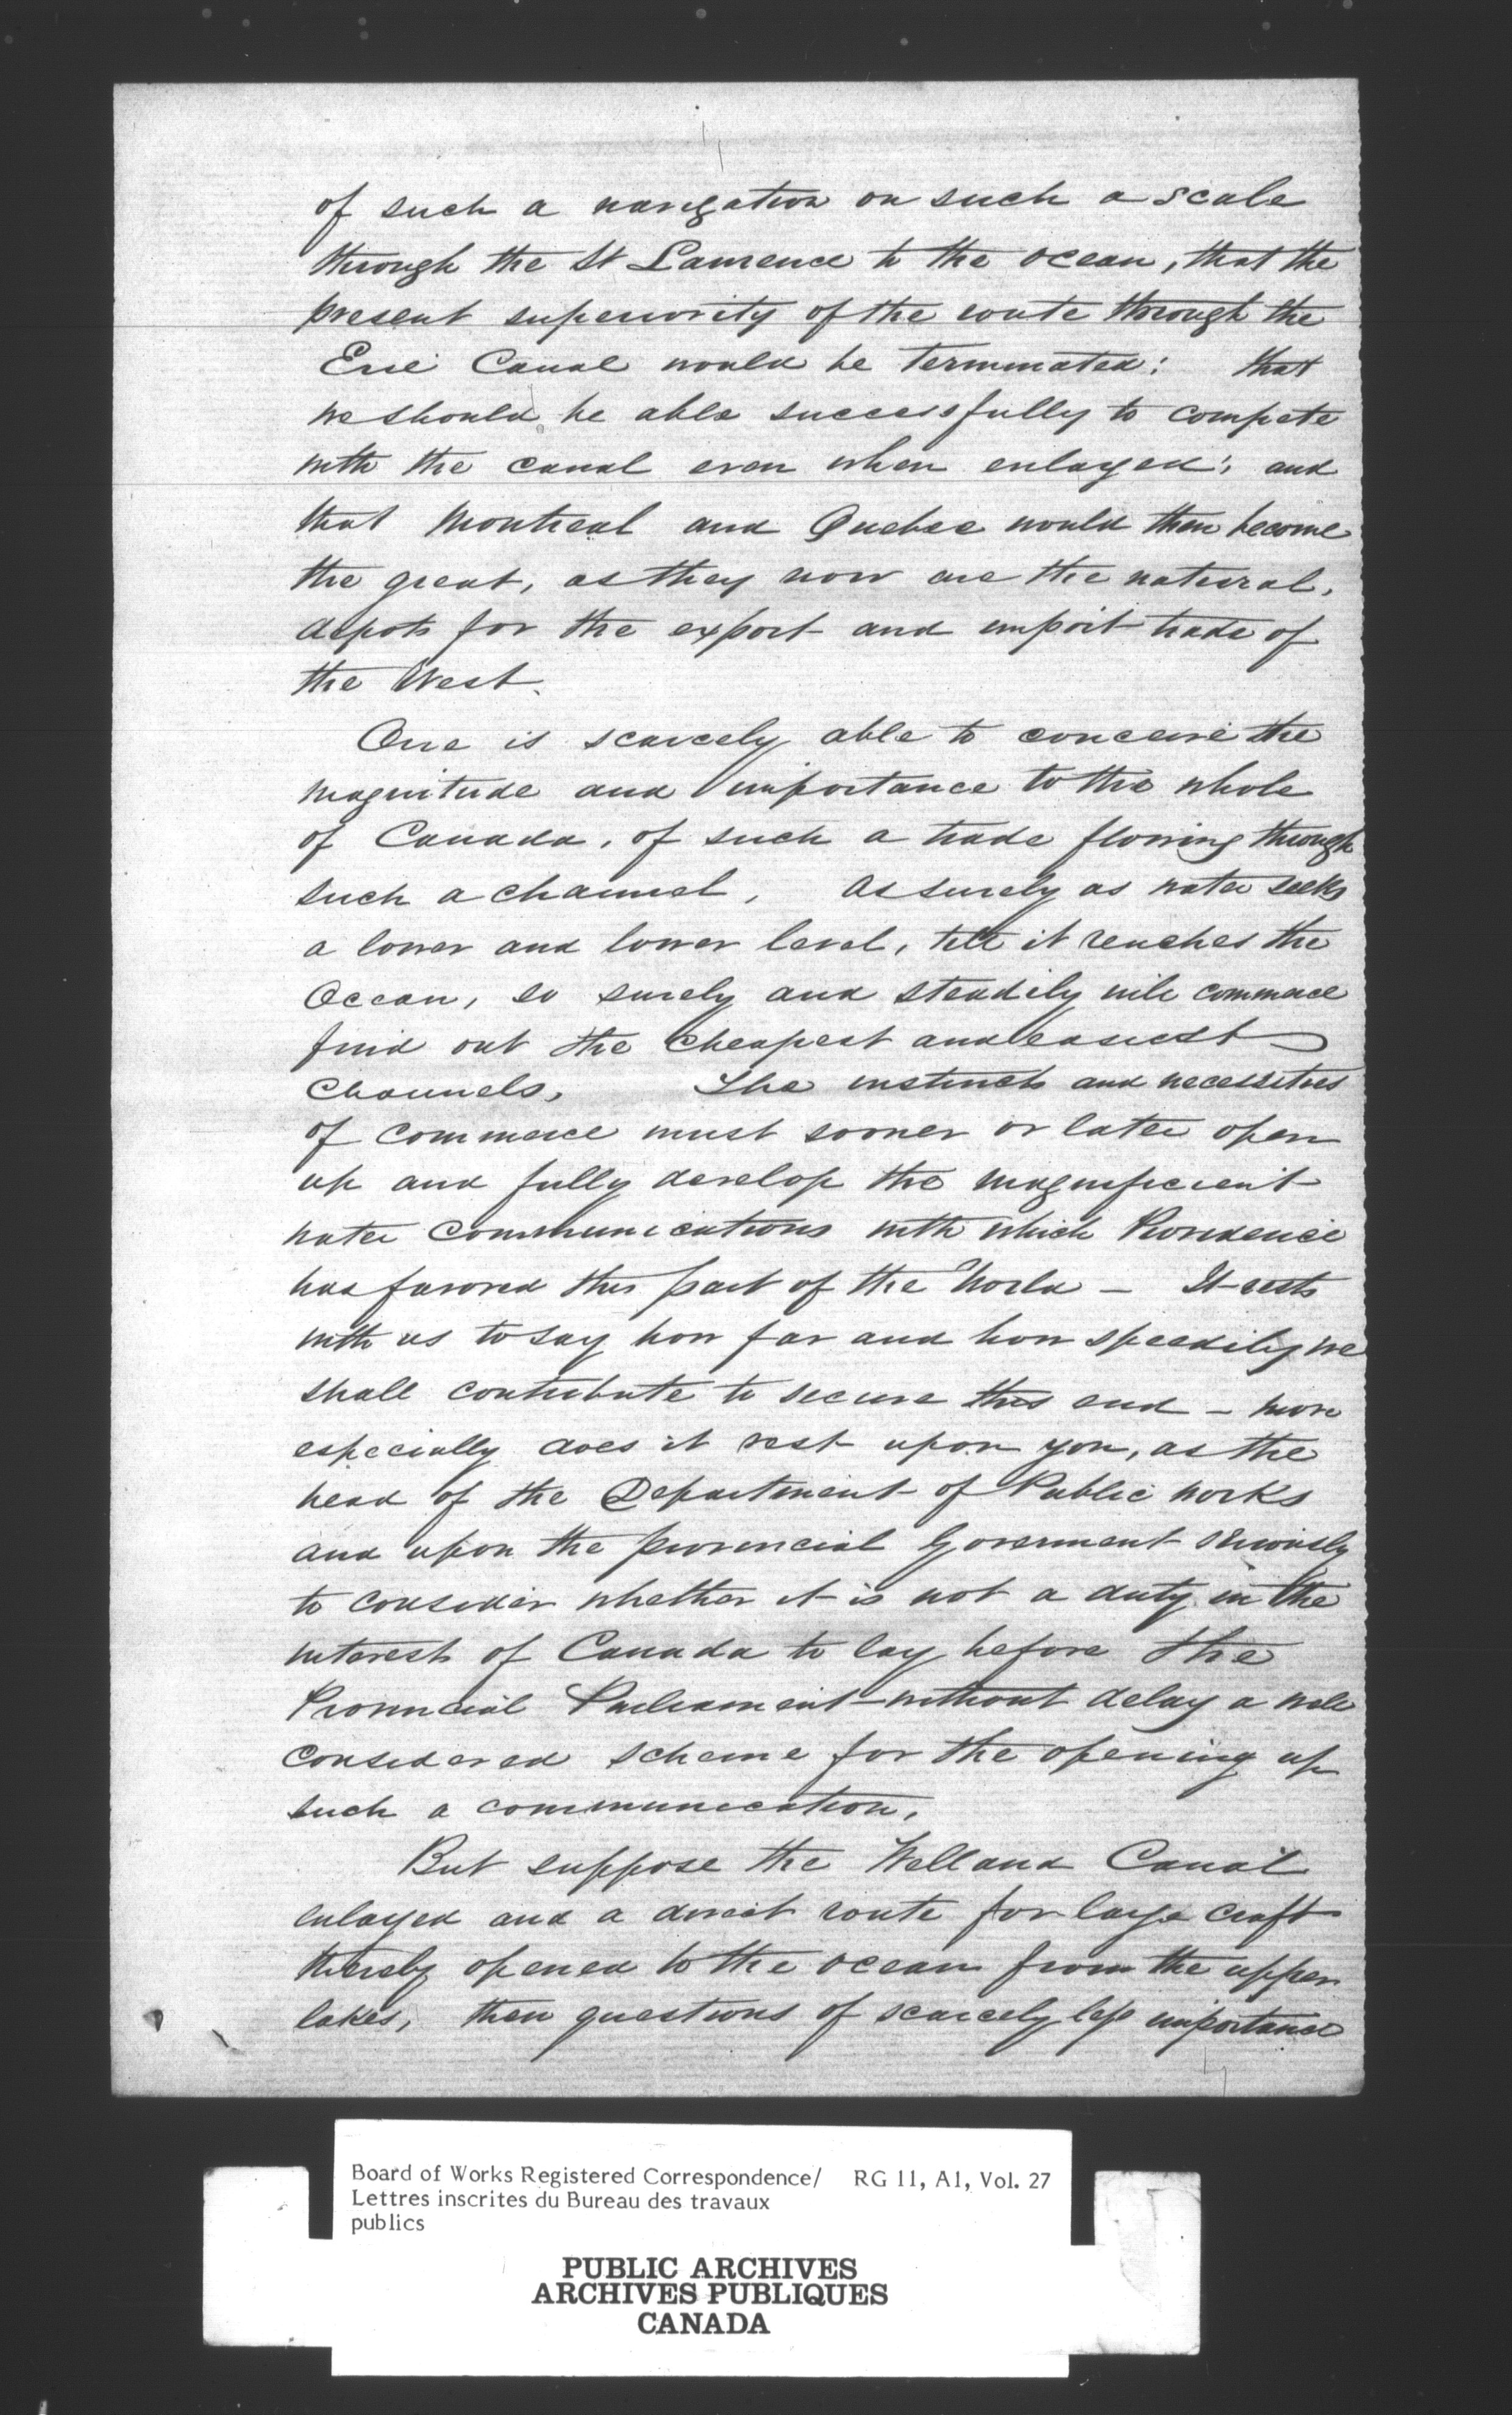 of such a navigation on such a scale
through the St Lawrence to the ocean, that the
present superiority of the route through the
Erie Canal would be terminated: that
we should be able successfully to compete
with the canal even when enlarged; and
that Montreal and Quebec would then become
the great, as they now are the natural,
depots for the export and import trade of
the West.
One is scarcely able to conceive the
magnitude and importance to the whole
of Canada, of such a trade flowing through
such a channel, As surely as water seeks
a lower and lower level, till it reaches the
Ocean, so surely and steadily will commerce
find out the cheapest and easiest
channels, The instincts and necessities
of commerce must sooner or later open
up and fully develop the magnificient
water communications with which Providence
has favored this part of the World - It rests
with us to say how far and how speedily we
shall contribute to secure this end - more
especially does it rest upon you, as the
head of the Department of Public Works
and upon the provincial Goverment seriously
to consider whether it is not a duty in the
interests of Canada to lay before the
Provincial Parliament without delay a well
considered scheme for the opening up
such a communication,
But suppose the Welland Canal
enlarged and a direct route for large craft
thereby opened to the ocean from the upper
lakes, then questions of scarcely less importance
Board of Works Registered Correspondence/ RG 11, A1, Vol. 27
Lettres inscrites du Bureau des travaux
publics
PUBLIC ARCHIVES
ARCHIVES PUBLIQUES
CANADA